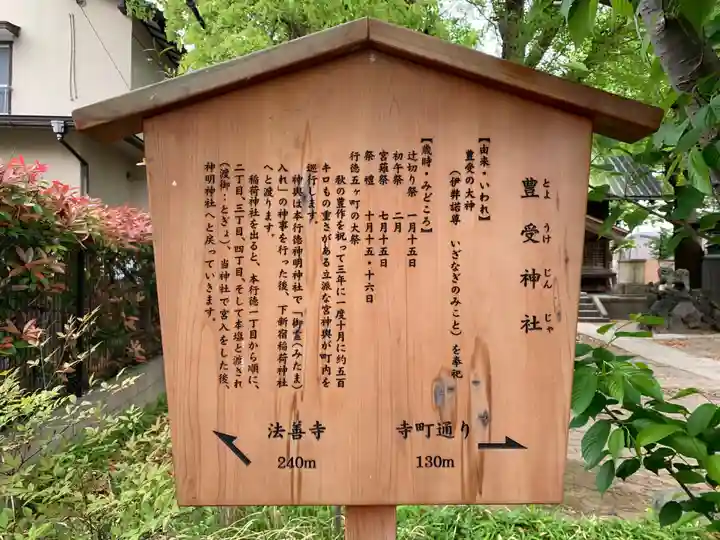 豊受神社
とようけじんじゃ
【由来・いわれ】
豊受の大神
(伊弉諾尊 いざなぎのみこと)を奉祀
【歳時・みどころ】
辻切り祭 一月十五日
初午祭 二月
宮薙祭 七月十五日
祭禮 十月十五・十六日
行徳五ヶ町の大祭
秋の豊作を祝って三年に一度十月に約五百
キロもの重さがある立派な宮神輿が町内を
巡行します。
神輿は本行徳神明神社で「御霊(みたま)
入れ」の神事を行った後、下新宿稲荷神社
へと渡ります。
稲荷神社を出ると、本行徳一丁目から順に、
二丁目、三丁目、四丁目、そして本塩と渡され
(渡御…とぎょ)、当神社で宮入をした後、
神明神社へと戻っていきます。
法善寺
240m
寺町通り
130m